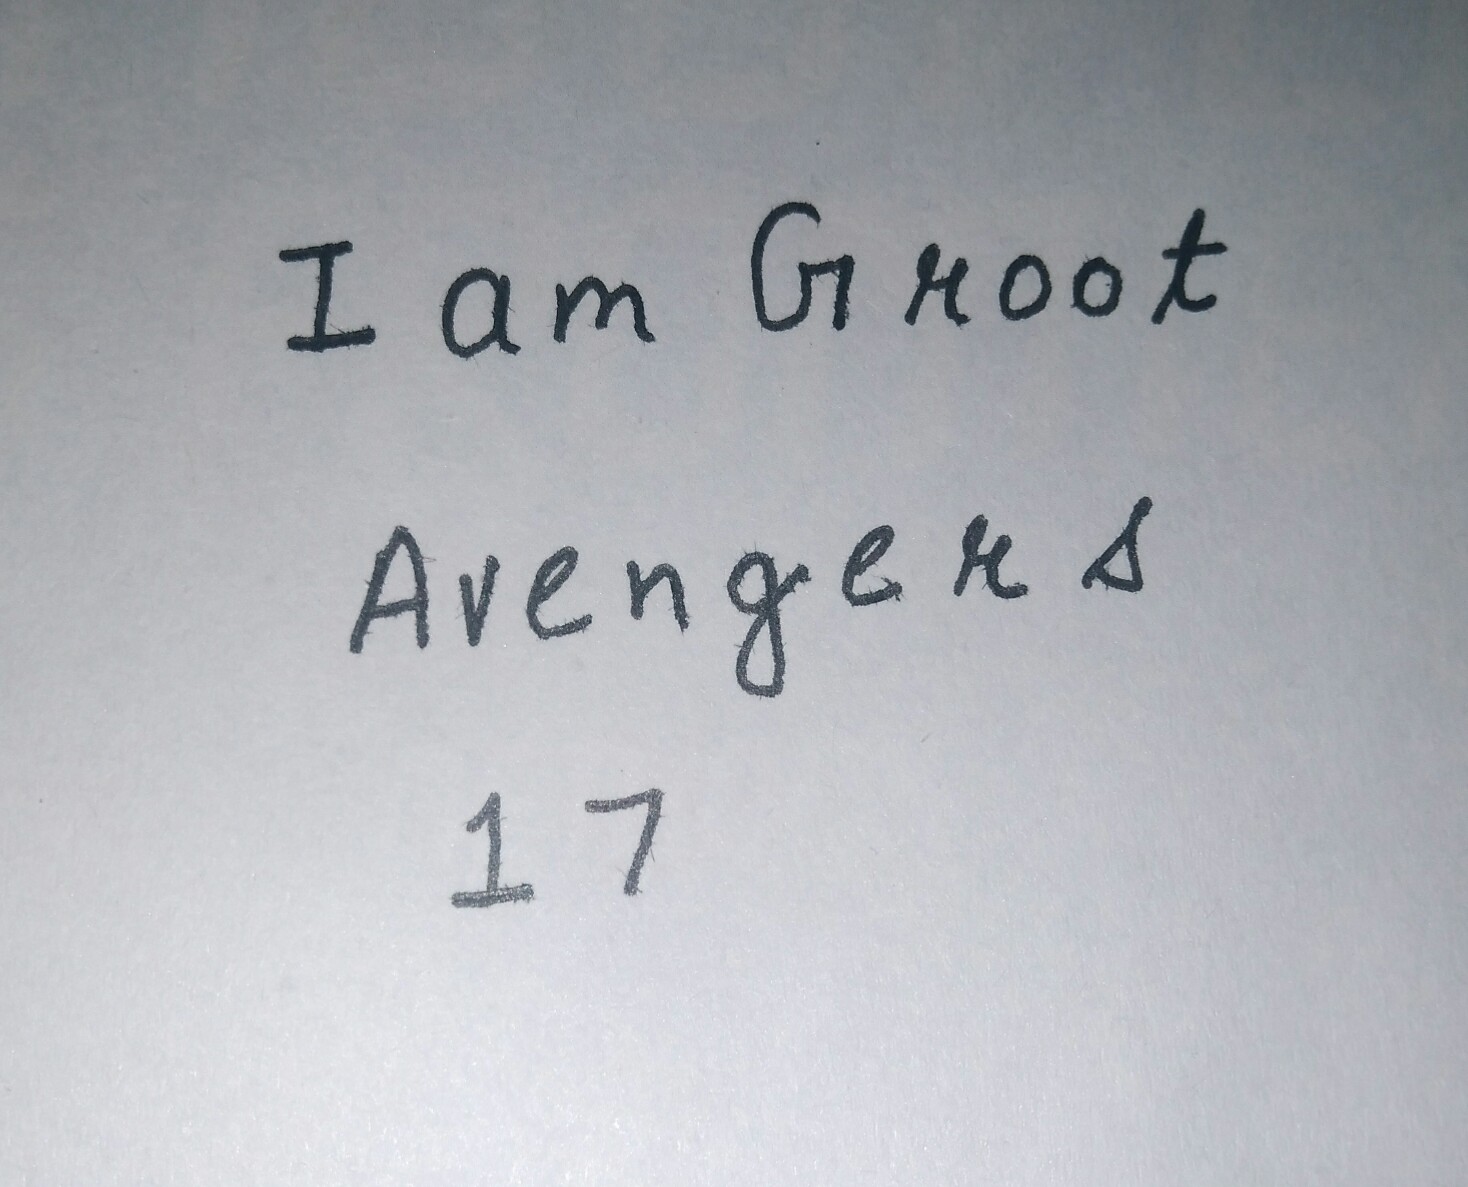 I am Groot
Avengers
17